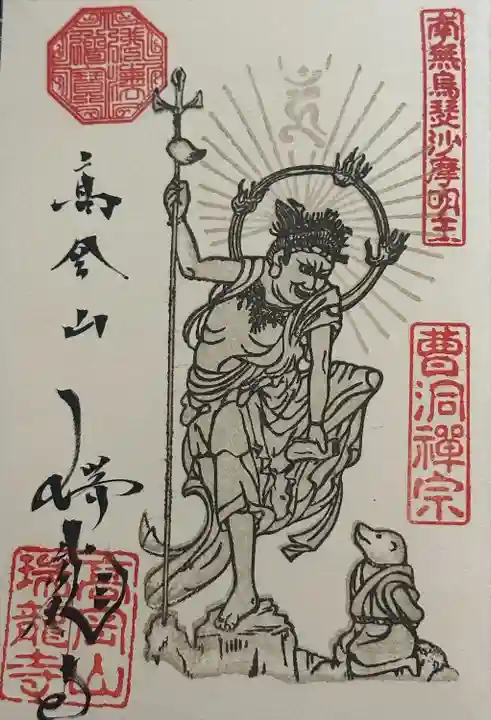 南無烏瑟沙摩明王
曹洞禅宗
高岡山
瑞龍寺
高岡山
瑞龍寺